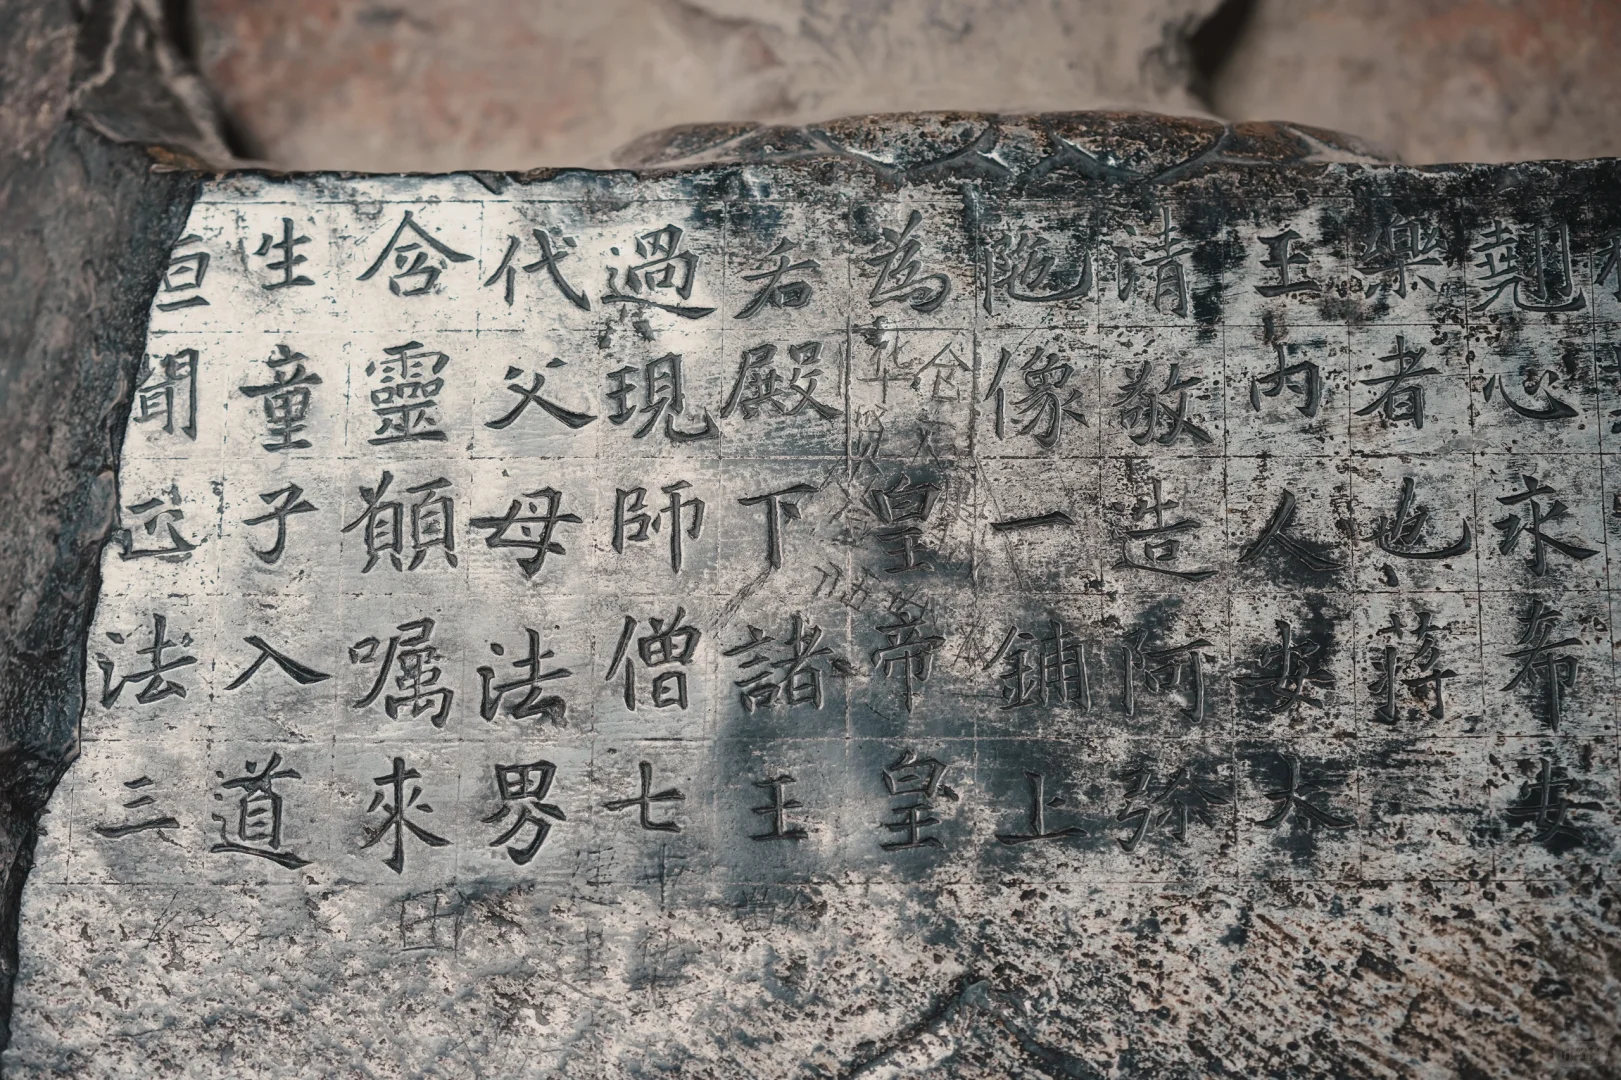 剋心永希安
樂者也蔣
王内人安太
清敬造阿弥
陁像一鋪上
為皇帝皇
右殿下諸王
過現師僧七
代父母法界
含靈願嘱來
生童子入道
恒聞正法三